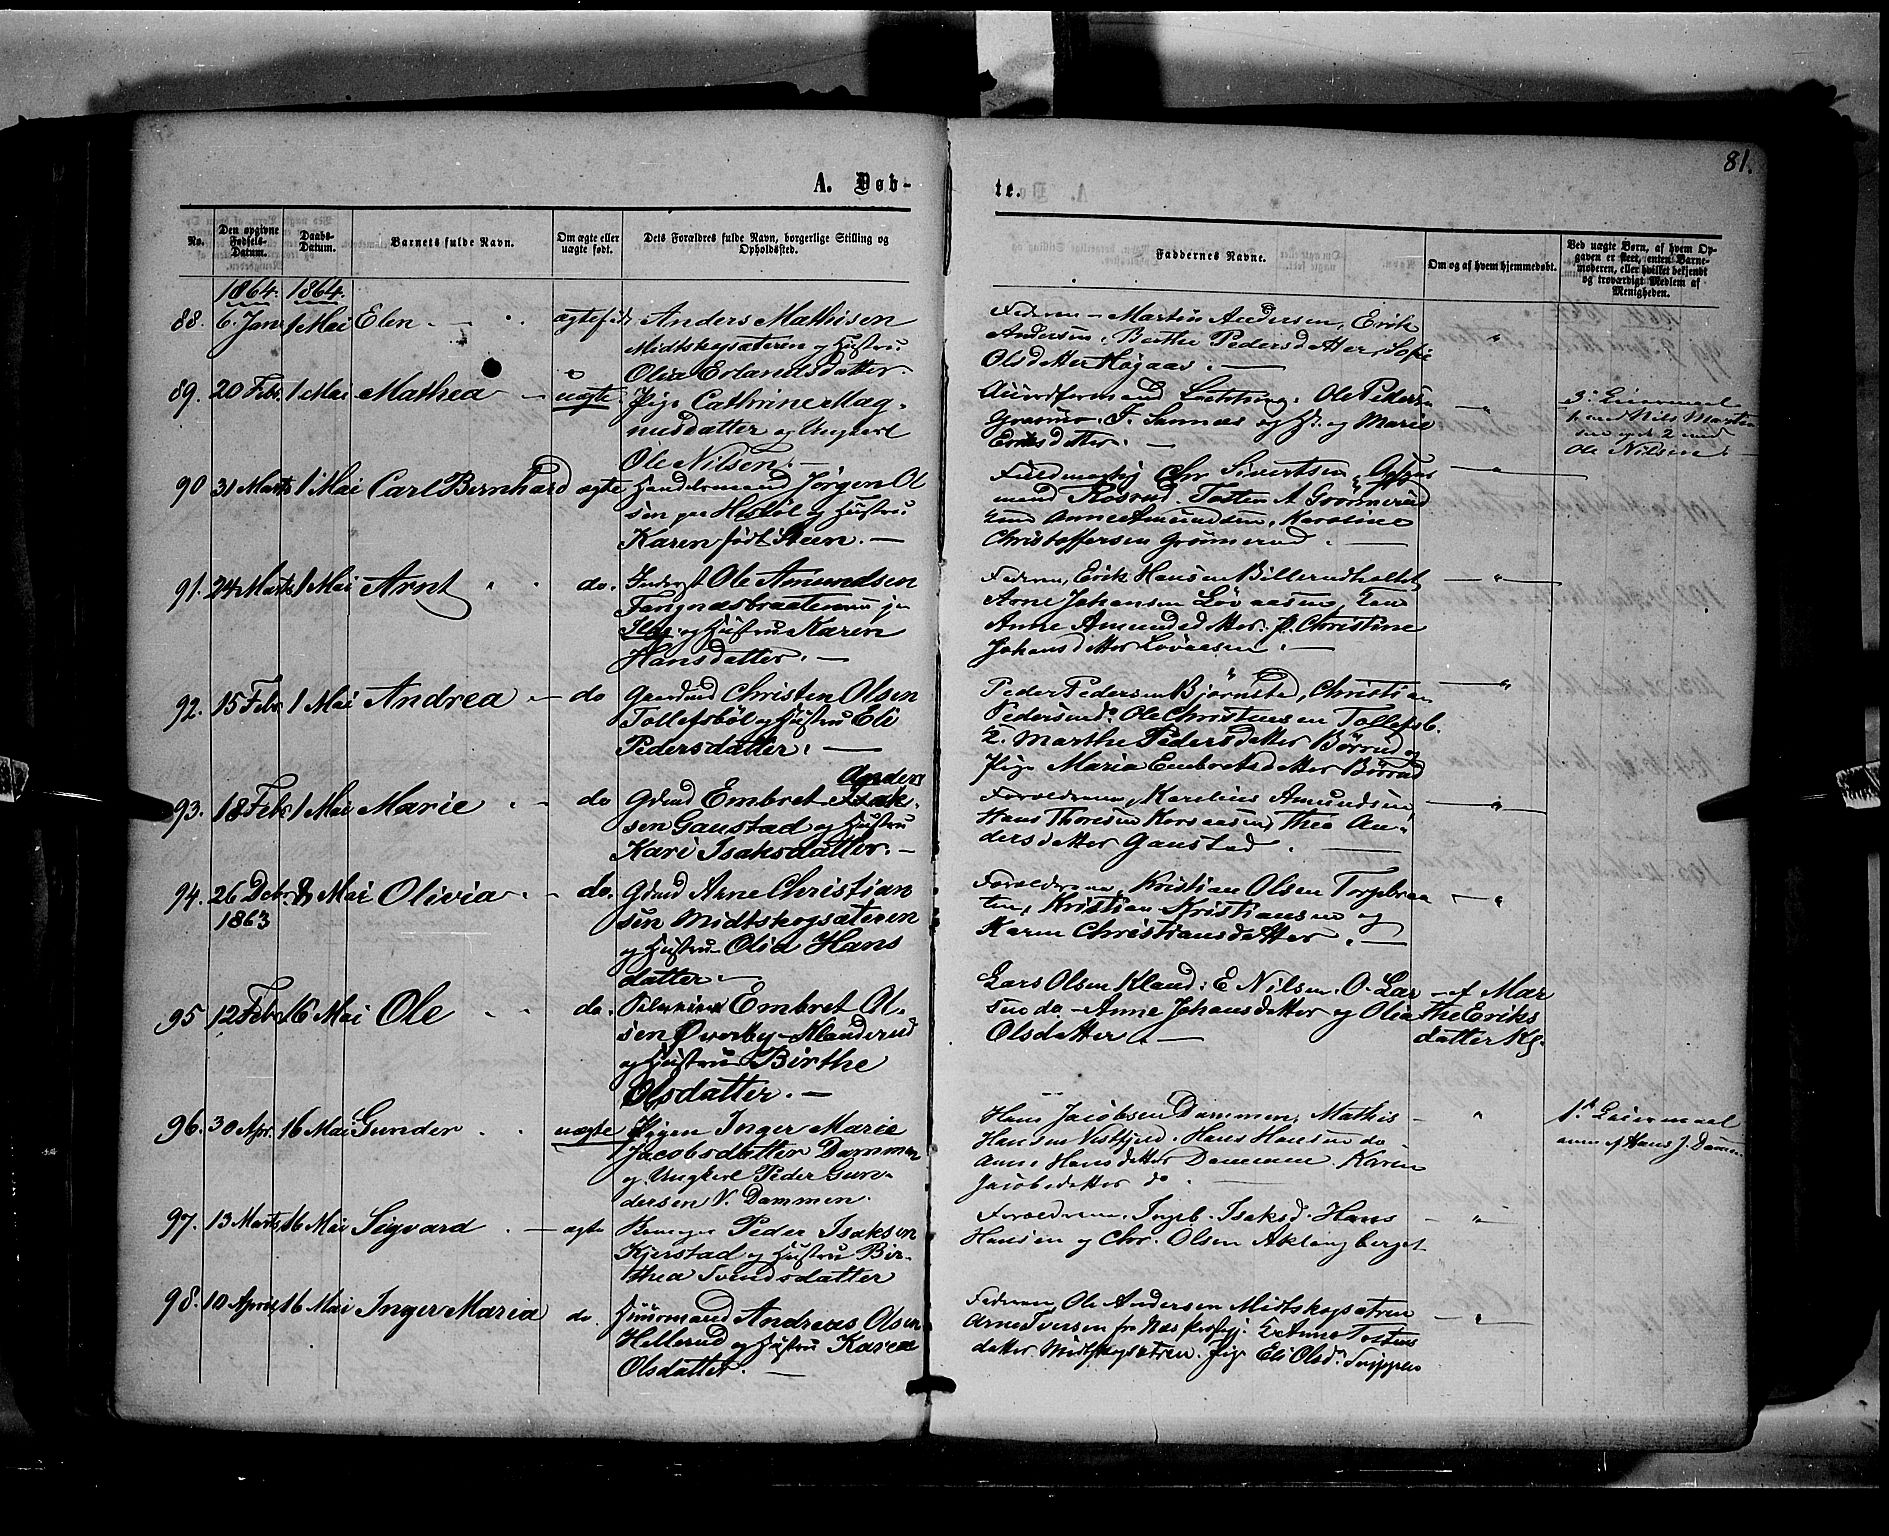 81.
A. Døb-
te.
No.
Den opgivne Fødsels-Datum.
Daabs-Datum.
Barnets fulde Navn.
Om ægte eller uægte født.
Dets Forældres fulde Navn, borgerlige Stilling og Opholdssted.
Faddernes Navne.
Om og af hvem hjemmedøbt.
Ved uægte Børn, af hvem Opgaven er skeet, enten Barnemoderen, eller hvilket bekjendt og troværdigt Medlem af Menigheden.
1864. 1864.
88. 6. Jan. 1 Mai Elen
Anders Mathisen
Midtskogsæteren og Hustru
Olia Erlandsdatter.
Faderen - Martin Andersen, Erik
Andersen, Berthe Pedersdatter, Sofie
Olsdatter Høgaas.
89. 20 Febr. 1 Mai Mathea uægte
Pige Cathrine Mag-
nusdatter og Ungkarl
Ole Nilsen.
Ole Pedersen
og Marie
Eriksdatter.
3die Leiermaal
med Nils
2 med
Ole Nilsen
90 31 Marts 1 Mai Carl Bernhard ægte
Handelsmand Jørgen Ol
sen paa og Hustru
Karen født Steen.
Fuldmægtig Chr Sivertsen,
Rosrud. Tosten A Grønnerud
Anne Amundsen, Karoline
Christoffersen Grønnerud.
91. 24 Marts 1 Mai Arnt do.
Inderst Ole Amundsen
Fangnæsbraatenunder
og Hustru Karen
Hansdatter.
Faderen, Erik Hansen Billerudholtet
Arne Johansen Løvaasen,
Anne Amundsdatter. p. Christine
Johansdatter Løvaasen.
92. 15 Febr. 1 Mai Andrea do
Gaardmd Christen Olsen
Tollefsbøl og Hustru Eli
Pedersdatter.
Peder Pedersen Bjørnstd, Christian
Pedersen do. Ole Christensen Tollefsb.
Marthe Pedersdatter Børrud og
Pige Maria Embretsdatter Børrud
93. 18 Febr. 1 Mai Marie do
Anders
Gdmd Embret Isak-
sen Gaustad og Hustru
Kari Isaksdatter.
Forældrene, Karelius Amundsen
Hans Thoresen Korsaasen, Thea An-
dersdatter Gaustad.
94. 26 Debr. 8 Mai Olivia do.
1863
Gdmd Arne Christian
sen Midtskogsæteren
og Hustru Olia Hans
datter.
Forældrene, Kristian Olsen Torpbraa
ten, Kristian Kristiansen og
Karen Christiansdatter.
95. 12 Febr. 16 Mai Ole do.
Embret Ol-
sen Øverby-Klanderud
og Hustru Birthe
Olsdatter.
Lars Olsen Kland: E Nilsen. O. Lar
sen do - Anne Johansdatter og Olia
Olsdatter
af Mar
the Eriks
datter Kl.
96. 30 Apr. 16 Mai Gunder uægte
Pigen Inger Marie
Jacobsdatter Dammen
og Ungkarl Peder Gun-
dersen N. Dammen.
Hans Jacobsen Dammen, Mathis
Hansen Hans Hansen do
Anne Hansdatter Dammen Karen
Jacobsdatter do
1st Leiermaal
anm. af Hans J. Dammen
97. 13 Marts 16 Mai Sigvard ægte
Peder Isaksen
Kjerstad og Hustru Bir-
thea Svendsdatter
Forældrene, Ingeb. Isaksd. Hans
Hansen og Chr. Olsen Aklangberget
98. 10 April 16 Mai Inger Maria do.
Huusmand Andreas Olsen
Hellerud og Hustru Karen
Olsdatter.
Faderen, Ole Andersen Midtskogsætren
Arne Iversen fra Næs Præstgj. Anne Tostens
datter Midtskogsætren. Pige Eli Olsd.